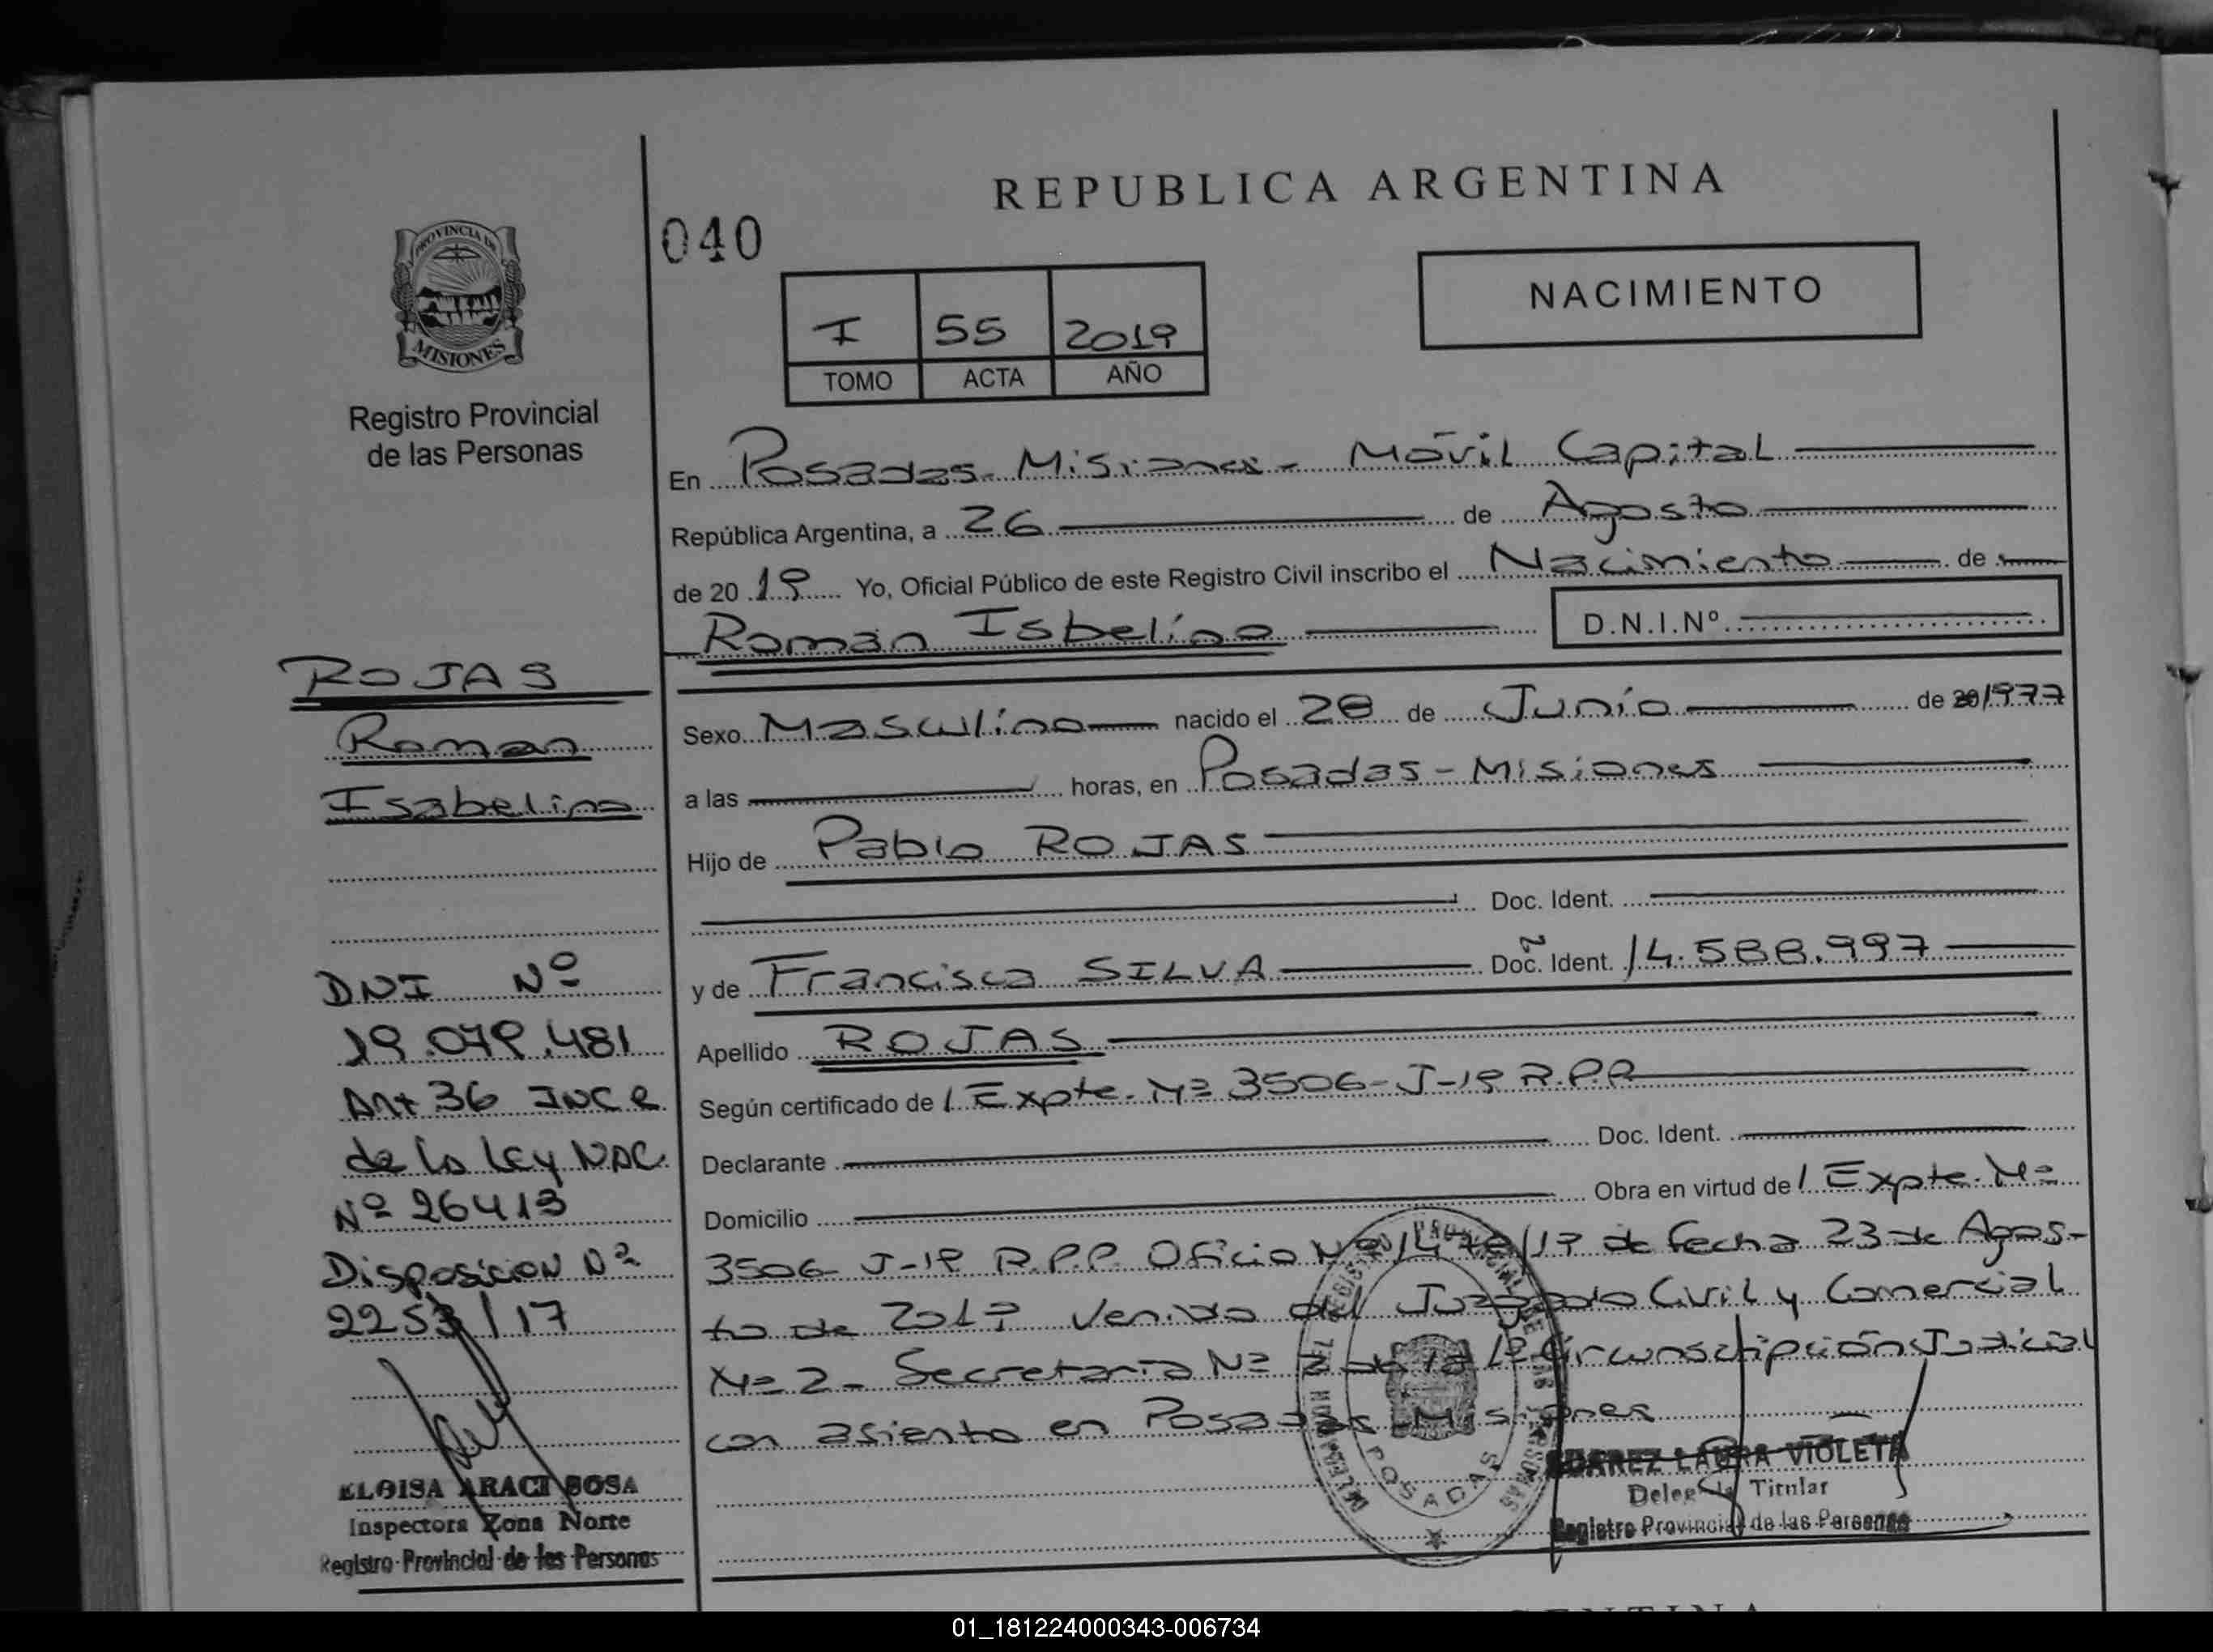 REPUBLICA ARGENTINA
040
NACIMIENTO
PROVINCIA DE
MISIONES
Registro Provincial
de las Personas
I 55 2019
TOMO ACTA AÑO
En Posadas - Misiones - Móvil Capital
República Argentina, a 26 de Agosto
de 20 19 Yo, Oficial Público de este Registro Civil inscribo el Nacimiento de
Román Isbelino D.N.I.Nº
Sexo Masculino nacido el 28 de Junio de 20 1977
a las horas, en Posadas - Misiones
Hijo de Pablo ROJAS
Doc. Ident.
y de Francisca SILVA Doc. Ident. 14.588.997
Apellido ROJAS
Según certificado de Expte. Nº 3506-J-19 R.P.P.
Declarante Doc. Ident.
Domicilio Obra en virtud de Expte. Nº
3506- J-19 R.P.P. Oficio Nº de fecha 23 de Agos-
to de Venido del Juzgado Civil y Comercial
Nº 2 - Secretaria Nº de la 1º Circunscripción Judicial
con asiento en Posadas - Misiones
ROJAS
Roman
Isabelino
DNI Nº
19.079.481
Art 36 INC
de la Ley NAC
Nº 26413
Disposicion Nº
2253/17
ELOISA ARACI SOSA
Inspectora Zona Norte
Registro Provincial de las Personas
POSADAS
SUAREZ LAURA VIOLETA
Delegada Titular
Registro Provincial de las Personas
01_181224000343-006734